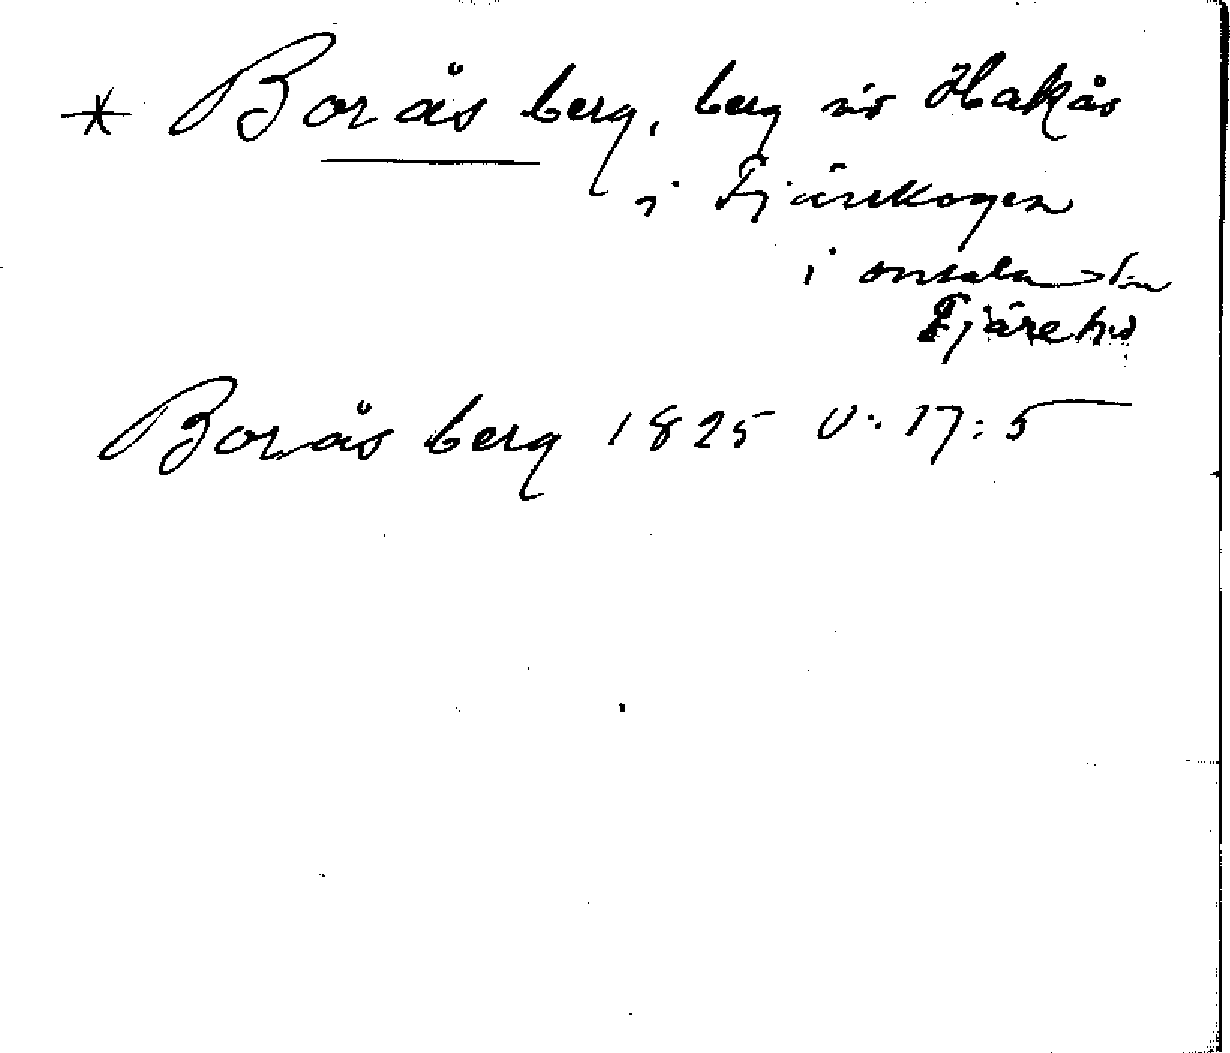 * Borås berg, berg vid Hakås
i Fjärskogen
i onsala sn
Fjäre hd
Borås berg 1825 V. 17:5